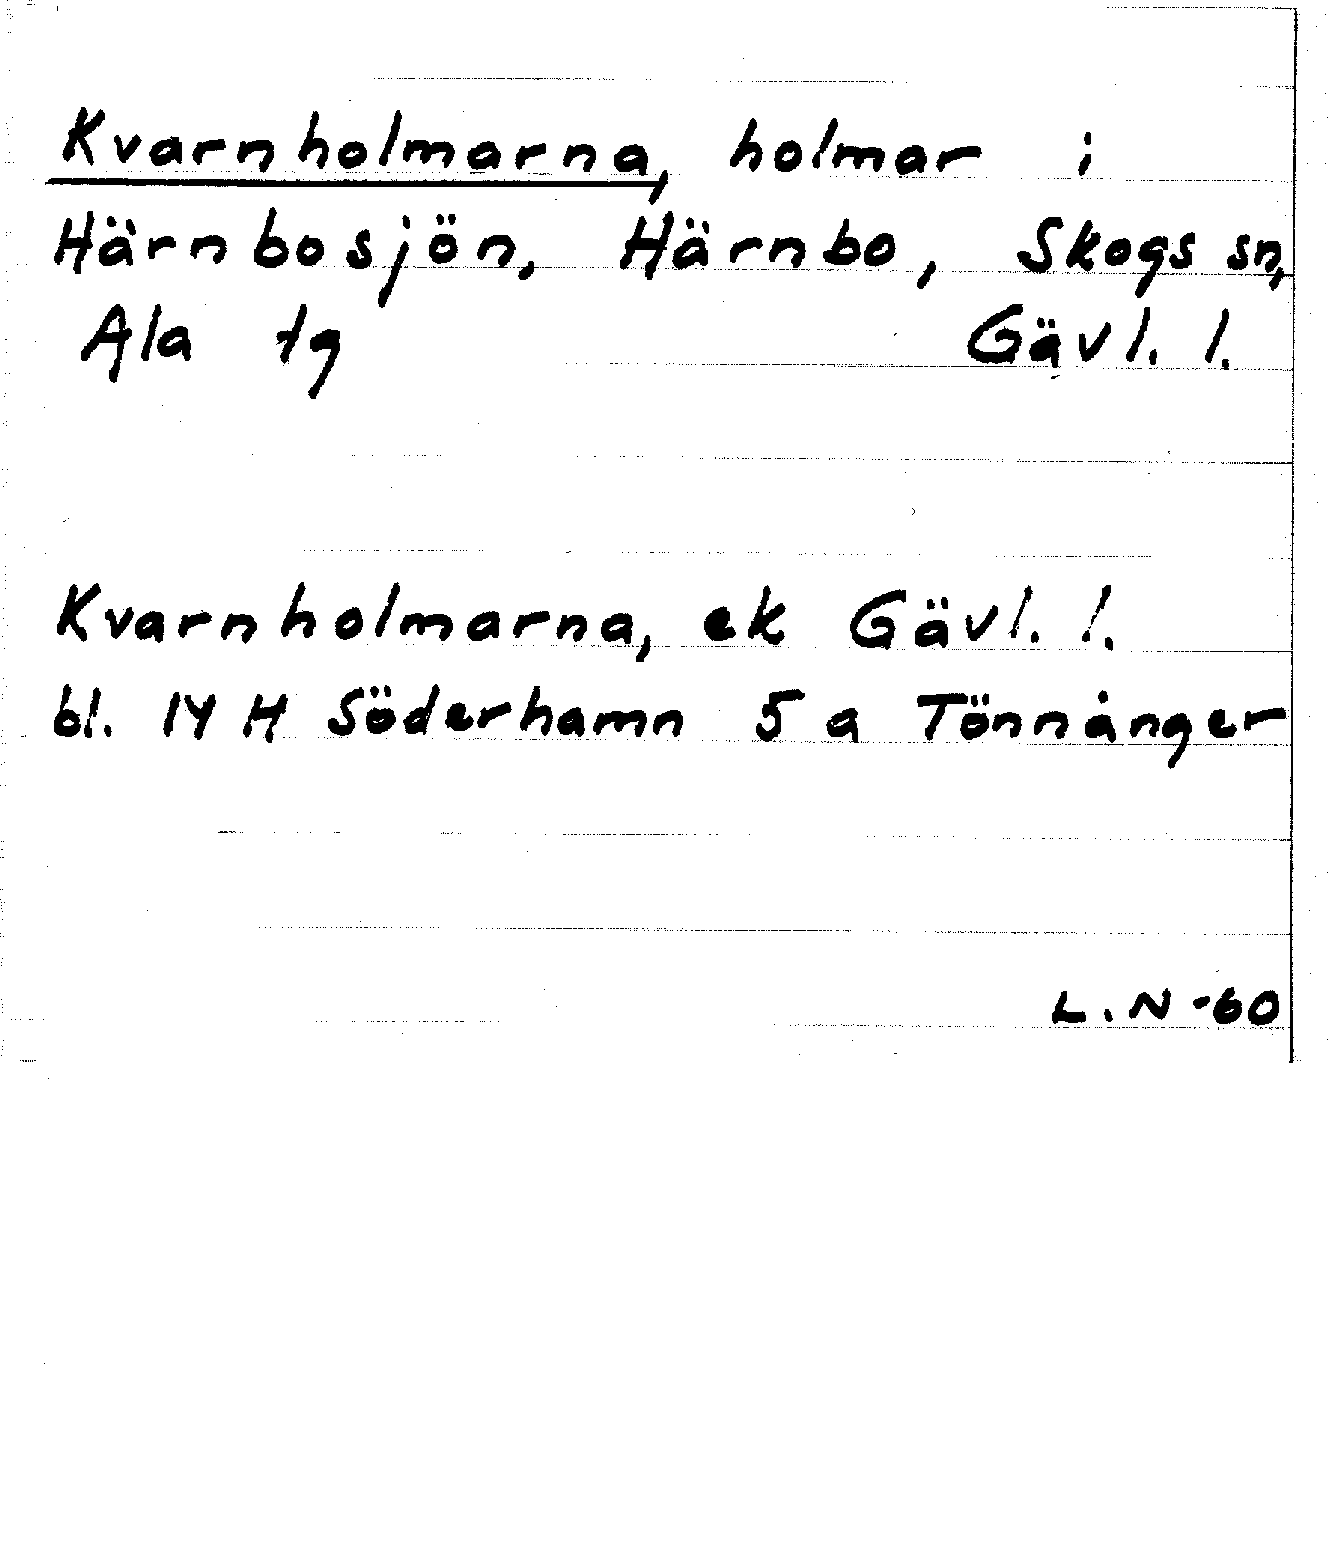 Kvarnholmarna, holmar i
Härnbosjön, Härnbo, Skogs sn,
Ala tg Gävl. l.
Kvarnholmarna, ek Gävl. l.
bl. 14 H Söderhamn 5 a Tönnånger
L.N -60